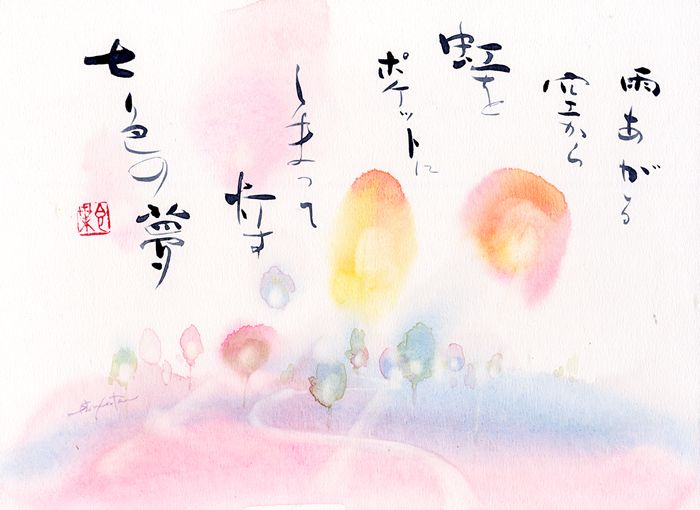 雨あがる
空から
虹を
ポケットに
しまって
灯す
七色の
夢